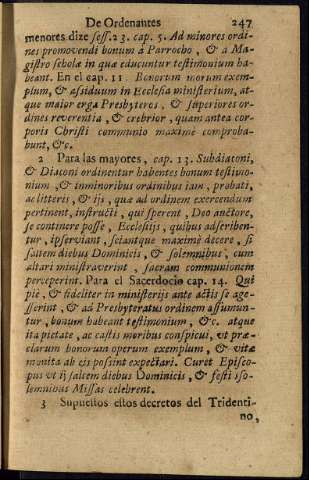 De Ordenantes 247
menores dize sess. 23. cap. 5. Ad minores ordi-
nes promovendi bonum à Parrocho, & a Ma-
gistro scholæ in qua educuntur testimonium ha-
beant. En el cap. 11. Bonorum morum exem-
plum, & assiduum in Ecclesia ministerium, at-
que maior erga Presbyteros, & superiores or-
dines reverentia, & crebrior, quam antea cor-
poris Christi communio maximè comproba-
bunt, &c.
2 Para las mayores, cap. 13. Subdiaconi,
& Diaconi ordinentur habentes bonum testimo-
nium, & inminoribus ordinibus iam, probati,
ac litteris, & ijs, quæ ad ordinem exercendum
pertinent, instructi, qui sperent, Deo auctore,
se continere posse, Ecclesijs, quibus adscriben-
tur, ipserviant, sciantque maximè decere, si
saltem diebus Dominicis, & solemnibus, cum
altari ministraverint, sacram communionem
perceperint. Para el Sacerdocio cap. 14. Qui
piè, & fideliter in ministerijs ante actis se ges-
serint, & ad Presbyteratus ordinem assumun-
tur, bonum habeant testimonium, &c. atque
ita pietate, ac castis moribus conspicui, vt præ-
clarum bonorum operum exemplum, & vitæ
monita ab eis possint expectari. Curet Episco-
pus vt ij saltem diebus Dominicis, & festi iso-
lemnibus Missas celebrent.
3 Supuestos estos decretos del Tridenti-
no,